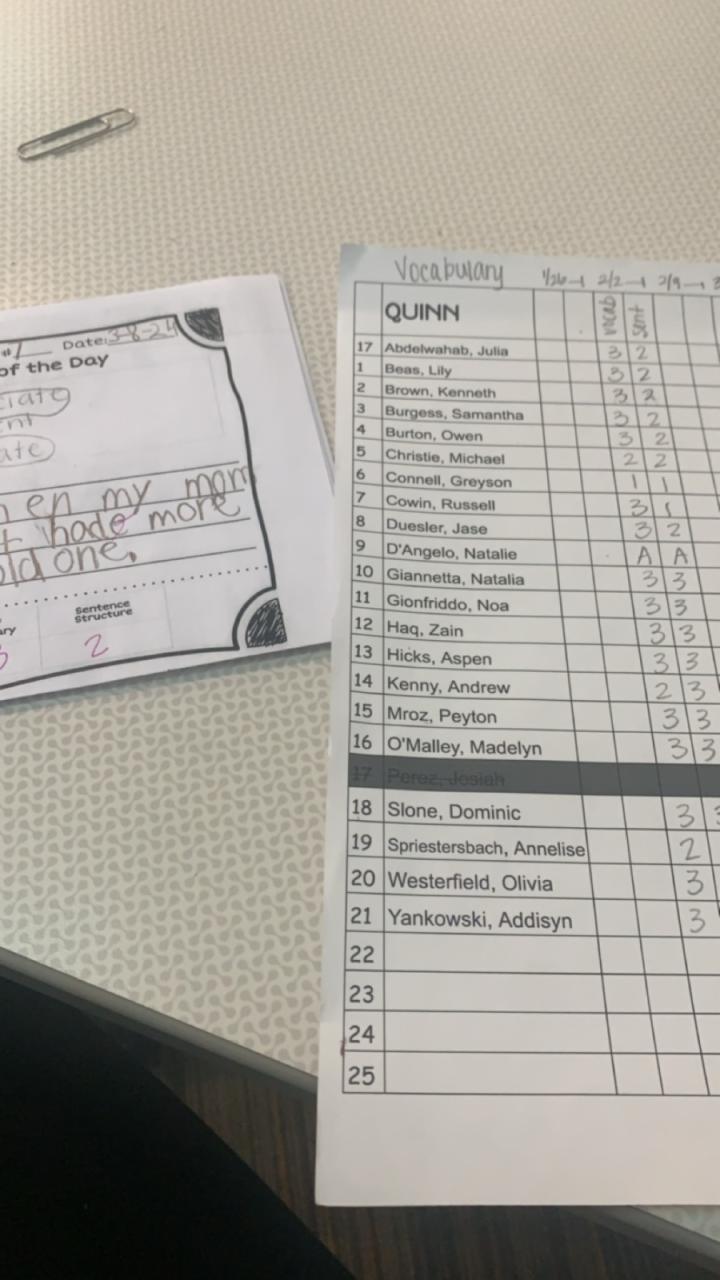 Date: 3-8-24
of the Day
en my mom
hade more
old one.
Sentence
Structure
2
Vocabulary 1/26 2/2 2/9
QUINN vocab sent
17 Abdelwahab, Julia 3 2
1 Beas, Lily 3 2
2 Brown, Kenneth 3 2
3 Burgess, Samantha 3 2
4 Burton, Owen 3 2
5 Christie, Michael 2 2
6 Connell, Greyson 1 1
7 Cowin, Russell 3 1
8 Duesler, Jase 3 2
9 D'Angelo, Natalie A A
10 Giannetta, Natalia 3 3
11 Gionfriddo, Noa 3 3
12 Haq, Zain 3 3
13 Hicks, Aspen 3 3
14 Kenny, Andrew 2 3
15 Mroz, Peyton 3 3
16 O'Malley, Madelyn 3 3
17 Perez, Josiah
18 Slone, Dominic 3
19 Spriestersbach, Annelise 2
20 Westerfield, Olivia 3
21 Yankowski, Addisyn 3
22
23
24
25